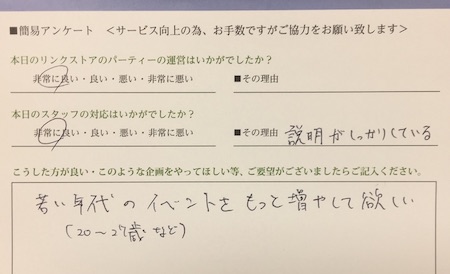 ■簡易アンケート ＜サービス向上の為、お手数ですがご協力をお願い致します＞
本日のリンクストアのパーティーの運営はいかがでしたか？
非常に良い・良い・悪い・非常に悪い ■その理由
本日のスタッフの対応はいかがでしたか？
非常に良い・良い・悪い・非常に悪い ■その理由 説明がしっかりしている
こうした方が良い・このような企画をやってほしい等、ご要望がございましたらご記入ください。
若い年代のイベントをもっと増やして欲しい
(20～27歳など)